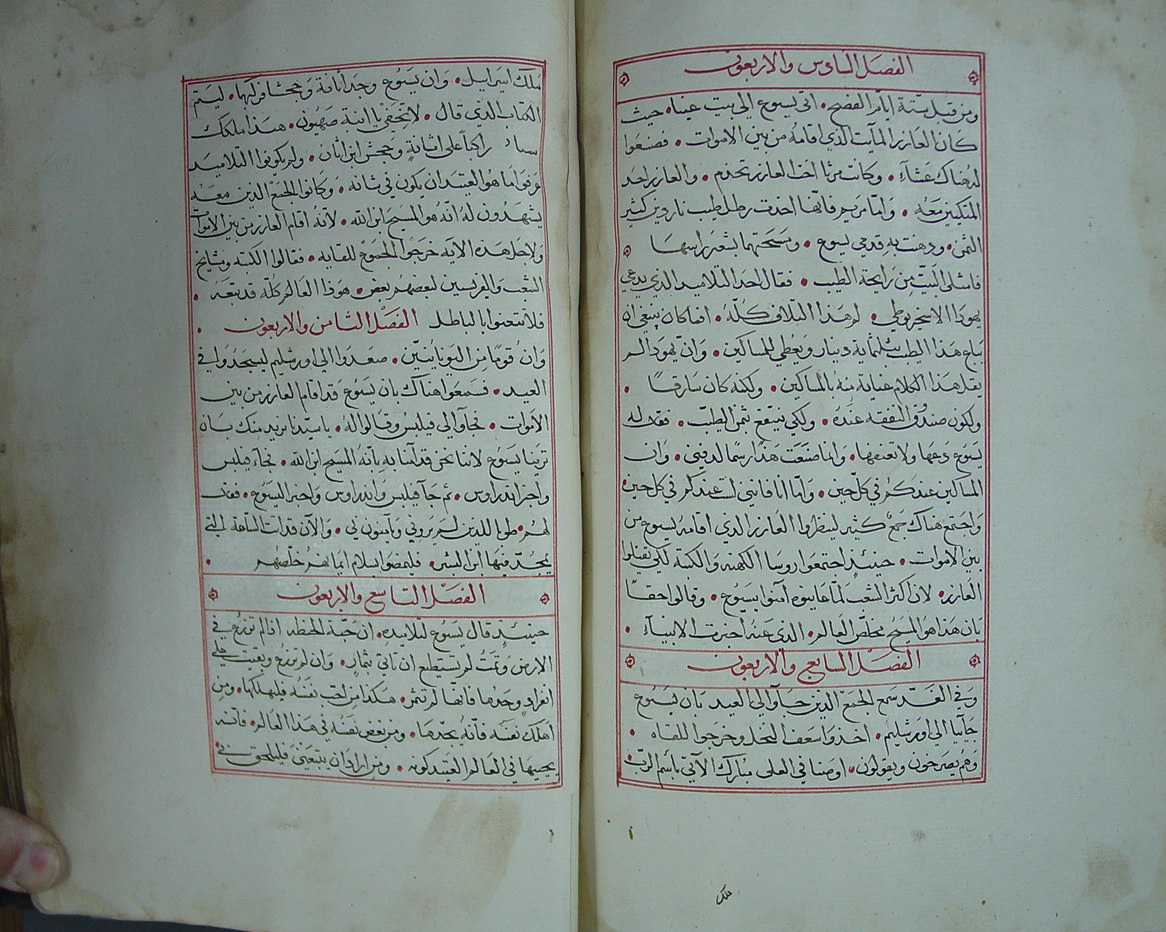 الفصل السادس والاربعون
ومن قبل ستة ايام الفصح • اتى يسوع الى بيت عينا • حيث
كان العازر المايت الذي اقامه من بين الاموات • فصنعوا
له هناك عشآء • وكانت مرثا اخت العازر تخدم • والعازر احد
المتكين معه • واما مريم فانها اخذت رطل طيب ناردين كثير
الثمن • ودهنت به قدمي يسوع • ومسحتهما بشعر راسها
فامتلى البيت من رايحة الطيب • فقال احد التلاميد الذي يدعى
يهودا الاسخريوطي • لم هذا التلاف كله • افما كان ينبغي ان
يباع هذا الطيب بثلثماية دينار ويعطى للمساكين • وان يهودا لم
يقل هذا الكلام عناية منه بالمساكين • ولكنه كان سارقًا •
ولكون صندوق النفقه عنده • ولكي ينتفع بثمن الطيب • فقال له
يسوع دعها ولا تعنفها • وانما صنعت هذا رسما لدفني • وان
المساكين عندكم في كل حين • واما انا فانني لست عندكم في كل حين
واجتمع هناك جمع كثير لينظروا العازر الذي اقامه يسوع من
بين الاموات • حينئذ اجتمعوا روسا الكهنه والكتبة لكي يقتلوا
العازر • لان اكثر الشعب لما عاينوه آمنوا بيسوع • وقالوا حقًا
بان هذا هو المسيح مخلص العالم • الذي عنه اخبرت الانبيآء •
الفصل السابع والاربعون
وفي الغد سمع الجمع الذين جآوا الى العيد بان يسوع
جآيا الى اورشليم • اخذوا سعف النخل وخرجوا للقاه •
وهم يصرخون ويقولون • اوصنا في العلى مبارك الآتي باسم الرب
ملك
ملك اسراييل • وان يسوع وجد اتانة وجحشا فركبها • ليتم
الكتاب الذي قال • لا تخافي يا ابنة صهيون • هذا ملكك
راكبًا على اتانةٍ وجحش ابن اتان • ولم يكونوا التلاميد
عرفوا ما هو العتيد ان يكون في شانه • وكانوا الجمع الذين معه
يشهدون له انه هو المسيح ابن الله • لانه اقام العازر من بين الاموات
ولاجل هذه الايه خرجوا الجموع للقايه • فقالوا الكتبه ومشايخ
الشعب والفريسيين لبعضهم بعض • هوذا العالم كله قد تبعه •
فلا تتعنوا بالباطل الفصل الثامن والاربعون •
وان قومًا من اليونانيين • صعدوا الى اورشليم ليسجدوا في
العيد • فسمعوا هناك بان يسوع قد اقام العازر من بين
الاموات • فجآوا الى فيلبس وقالوا له • يا سيدنا نريد منك بان
ترينا يسوع لاننا نحن قد آمنا به بانه المسيح ابن الله • فجآء فيلبس
واخبر اندراوس • ثم جآ فيلبس واندراوس واخبرا ليسوع • فقال
لهم • طوبا للذين لم يروني وآمنون بي • والآن قد اتت الساعة التي
يمجد فيها ابن البشر • فليمضوا بسلام ايمانهم خلصهم •
الفصل التاسع والاربعون
حينيذٍ قال يسوع لتلاميده • ان حبة الحنطه اذا لم تزرع في
الارض وتمت لم تستطيع ان تاتي بثمار • وان لم تزرع وبقيت على
انفراد وحدها فانها لم تثمر • هكذا من احب نفسه فليهلكها • ومن
اهلك نفسه فانه يجدها • ومن بغض نفسه في هذا العالم • فانه
يحييها في العالم العتيد كونه • ومن اراد ان يتبعني فليلحق بي •